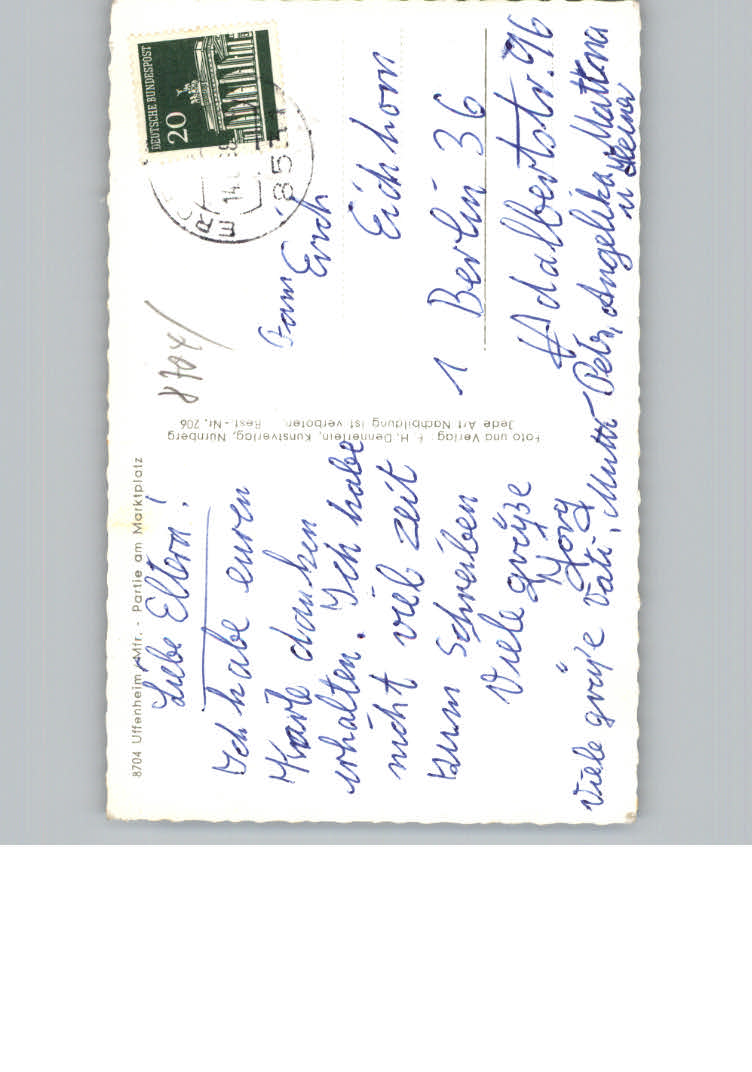 8704 Uffenheim /Mfr. - Partie am Marktplatz
Liebe Eltern!
Ich habe euren
Karte danken
erhalten. Ich habe
nicht viel Zeit
zum Schreiben
Viele grüße
Viele grüße Vati, Mutti Petr, Angelika,
u
Foto und Verlag: F. H. Dennerlein, Kunstverlag, Nürnberg
Jede Art Nachbildung ist verboten. Best.-Nr. 206
8704
DEUTSCHE BUNDESPOST
20
Fam
Erich
Eichhorn
1 Berlin 36
Adalbertstr. 96